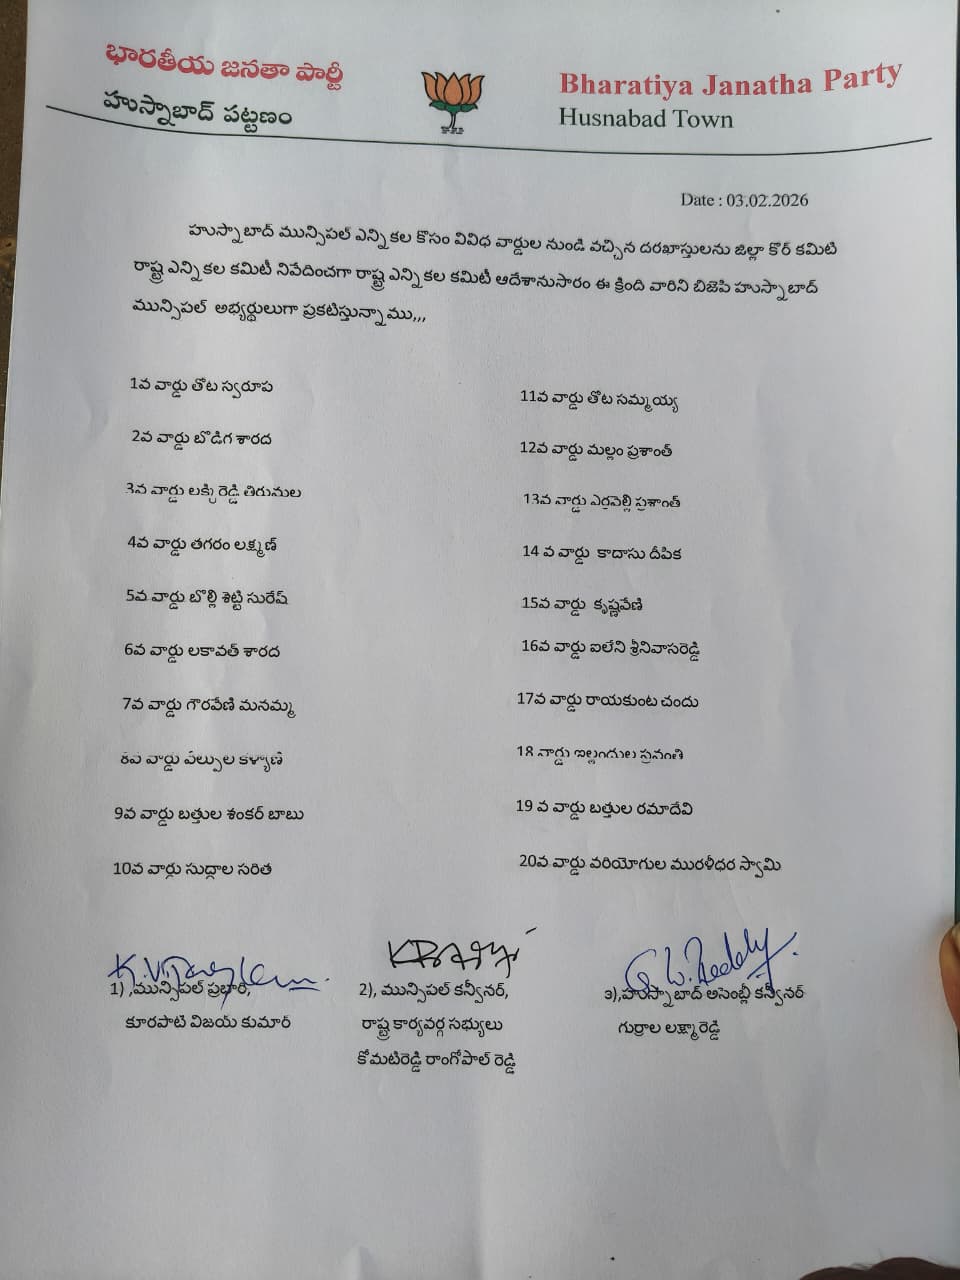 భారతీయ జనతా పార్టీ
హుస్నాబాద్ పట్టణం
Bharatiya Janatha Party
Husnabad Town
Date : 03.02.2026
హుస్నాబాద్ మున్సిపల్ ఎన్నికల కోసం వివిధ వార్డుల నుండి వచ్చిన దరఖాస్తులను జిల్లా కోర్ కమిటి
రాష్ట్ర ఎన్నికల కమిటీ నివేదించగా రాష్ట్ర ఎన్నికల కమిటీ ఆదేశానుసారం ఈ క్రింది వారిని బిజెపి హుస్నాబాద్
మున్సిపల్ అభ్యర్థులుగా ప్రకటిస్తున్నాము,,,
1వ వార్డు తోట స్వరూప
2వ వార్డు బొడిగ శారద
3వ వార్డు లక్కిరెడ్డి తిరుమల
4వ వార్డు తగరం లక్ష్మణ్
5వ వార్డు బొల్లి శెట్టి సురేష్
6వ వార్డు లకావత్ శారద
7వ వార్డు గౌరవేణి మనమ్మ
8వ వార్డు వేల్పుల కళ్యాణి
9వ వార్డు బత్తుల శంకర్ బాబు
10వ వార్డు సుద్దాల సరిత
11వ వార్డు తోట సమ్మయ్య
12వ వార్డు మల్లం ప్రశాంత్
13వ వార్డు ఎర్రవెల్లి ప్రశాంత్
14 వ వార్డు కాదాసు దీపిక
15వ వార్డు కృష్ణవేణి
16వ వార్డు ఐలేని శ్రీనివాసరెడ్డి
17వ వార్డు రాయకుంట చందు
18 వార్డు ఇల్లందుల స్రవంతి
19 వ వార్డు బత్తుల రమాదేవి
20వ వార్డు వరియోగుల మురళీధర స్వామి
1) ,మున్సిపల్ ప్రభారి,
కూరపాటి విజయ్ కుమార్
2), మున్సిపల్ కన్వీనర్,
రాష్ట్ర కార్యవర్గ సభ్యులు
కోమటిరెడ్డి రాంగోపాల్ రెడ్డి
3),హుస్నాబాద్ అసెంబ్లీ కన్వీనర్
గుర్రాల లక్ష్మారెడ్డి